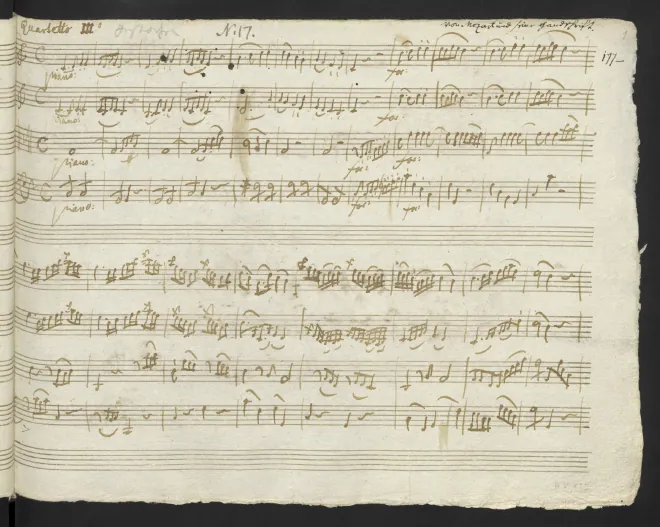 Quartetto III°
N: 17.
von Mozart und seine Handschrift.
177
piano: for:
piano: for:
piano: for: for:
piano: for: for: